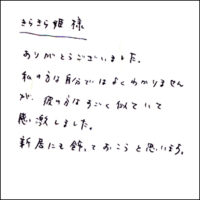 きらきら姫 様
ありがとうございました。
私の方は自分ではよくわかりません
が、彼の方はすごく似ていて
感激しました。
新居にも飾っておこうと思います。